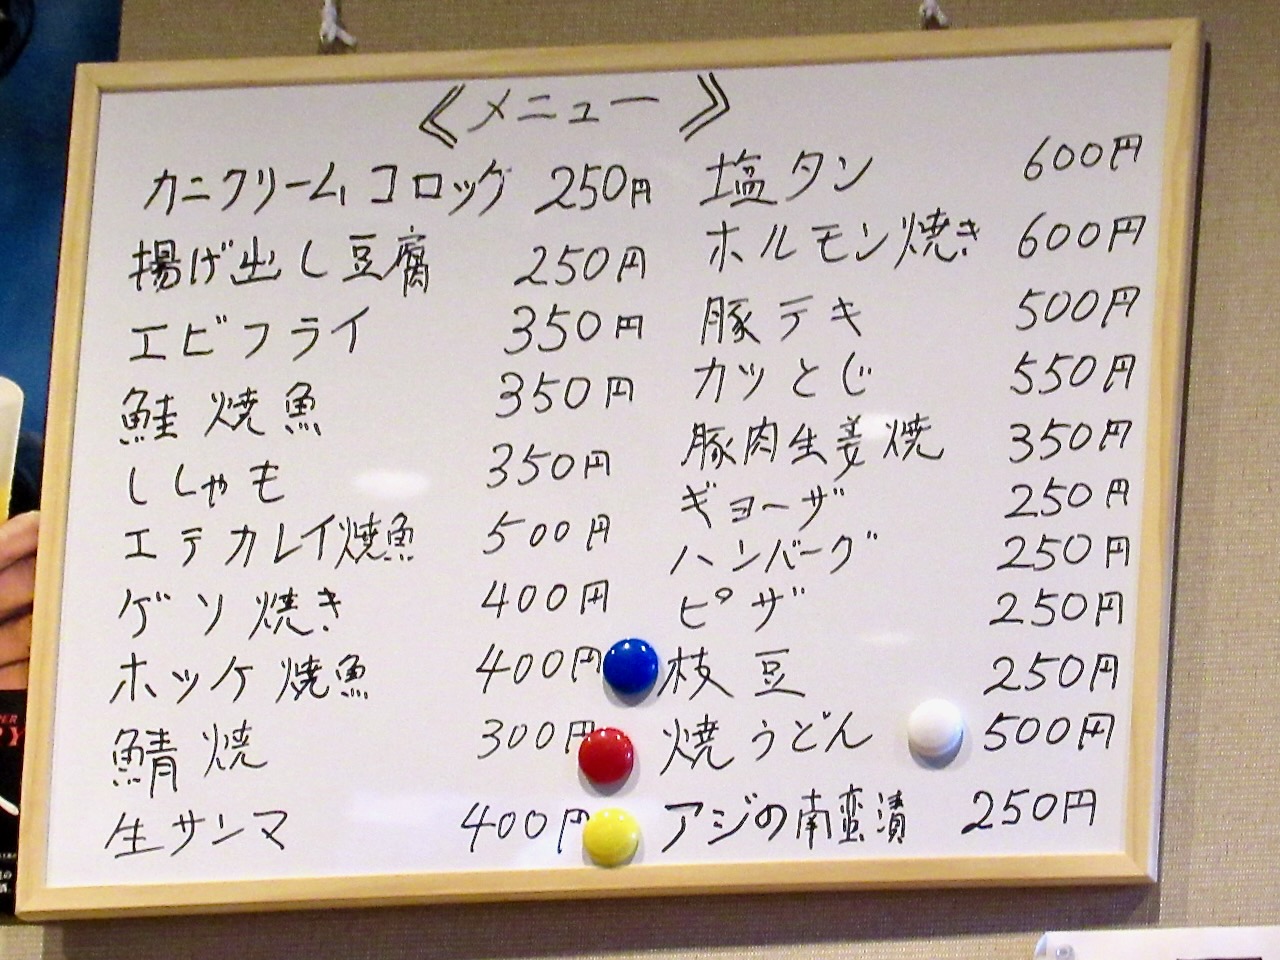 《メニュー》
カニクリームコロッケ 250円
揚げ出し豆腐 250円
エビフライ 350円
鮭焼魚 350円
ししゃも 350円
エテカレイ焼魚 500円
ゲソ焼き 400円
ホッケ焼魚 400円
鯖焼 300円
生サンマ 400円
塩タン 600円
ホルモン焼き 600円
豚テキ 500円
カツとじ 550円
豚肉生姜焼 350円
ギョーザ 250円
ハンバーグ 250円
ピザ 250円
枝豆 250円
焼うどん 500円
アジの南蛮漬 250円